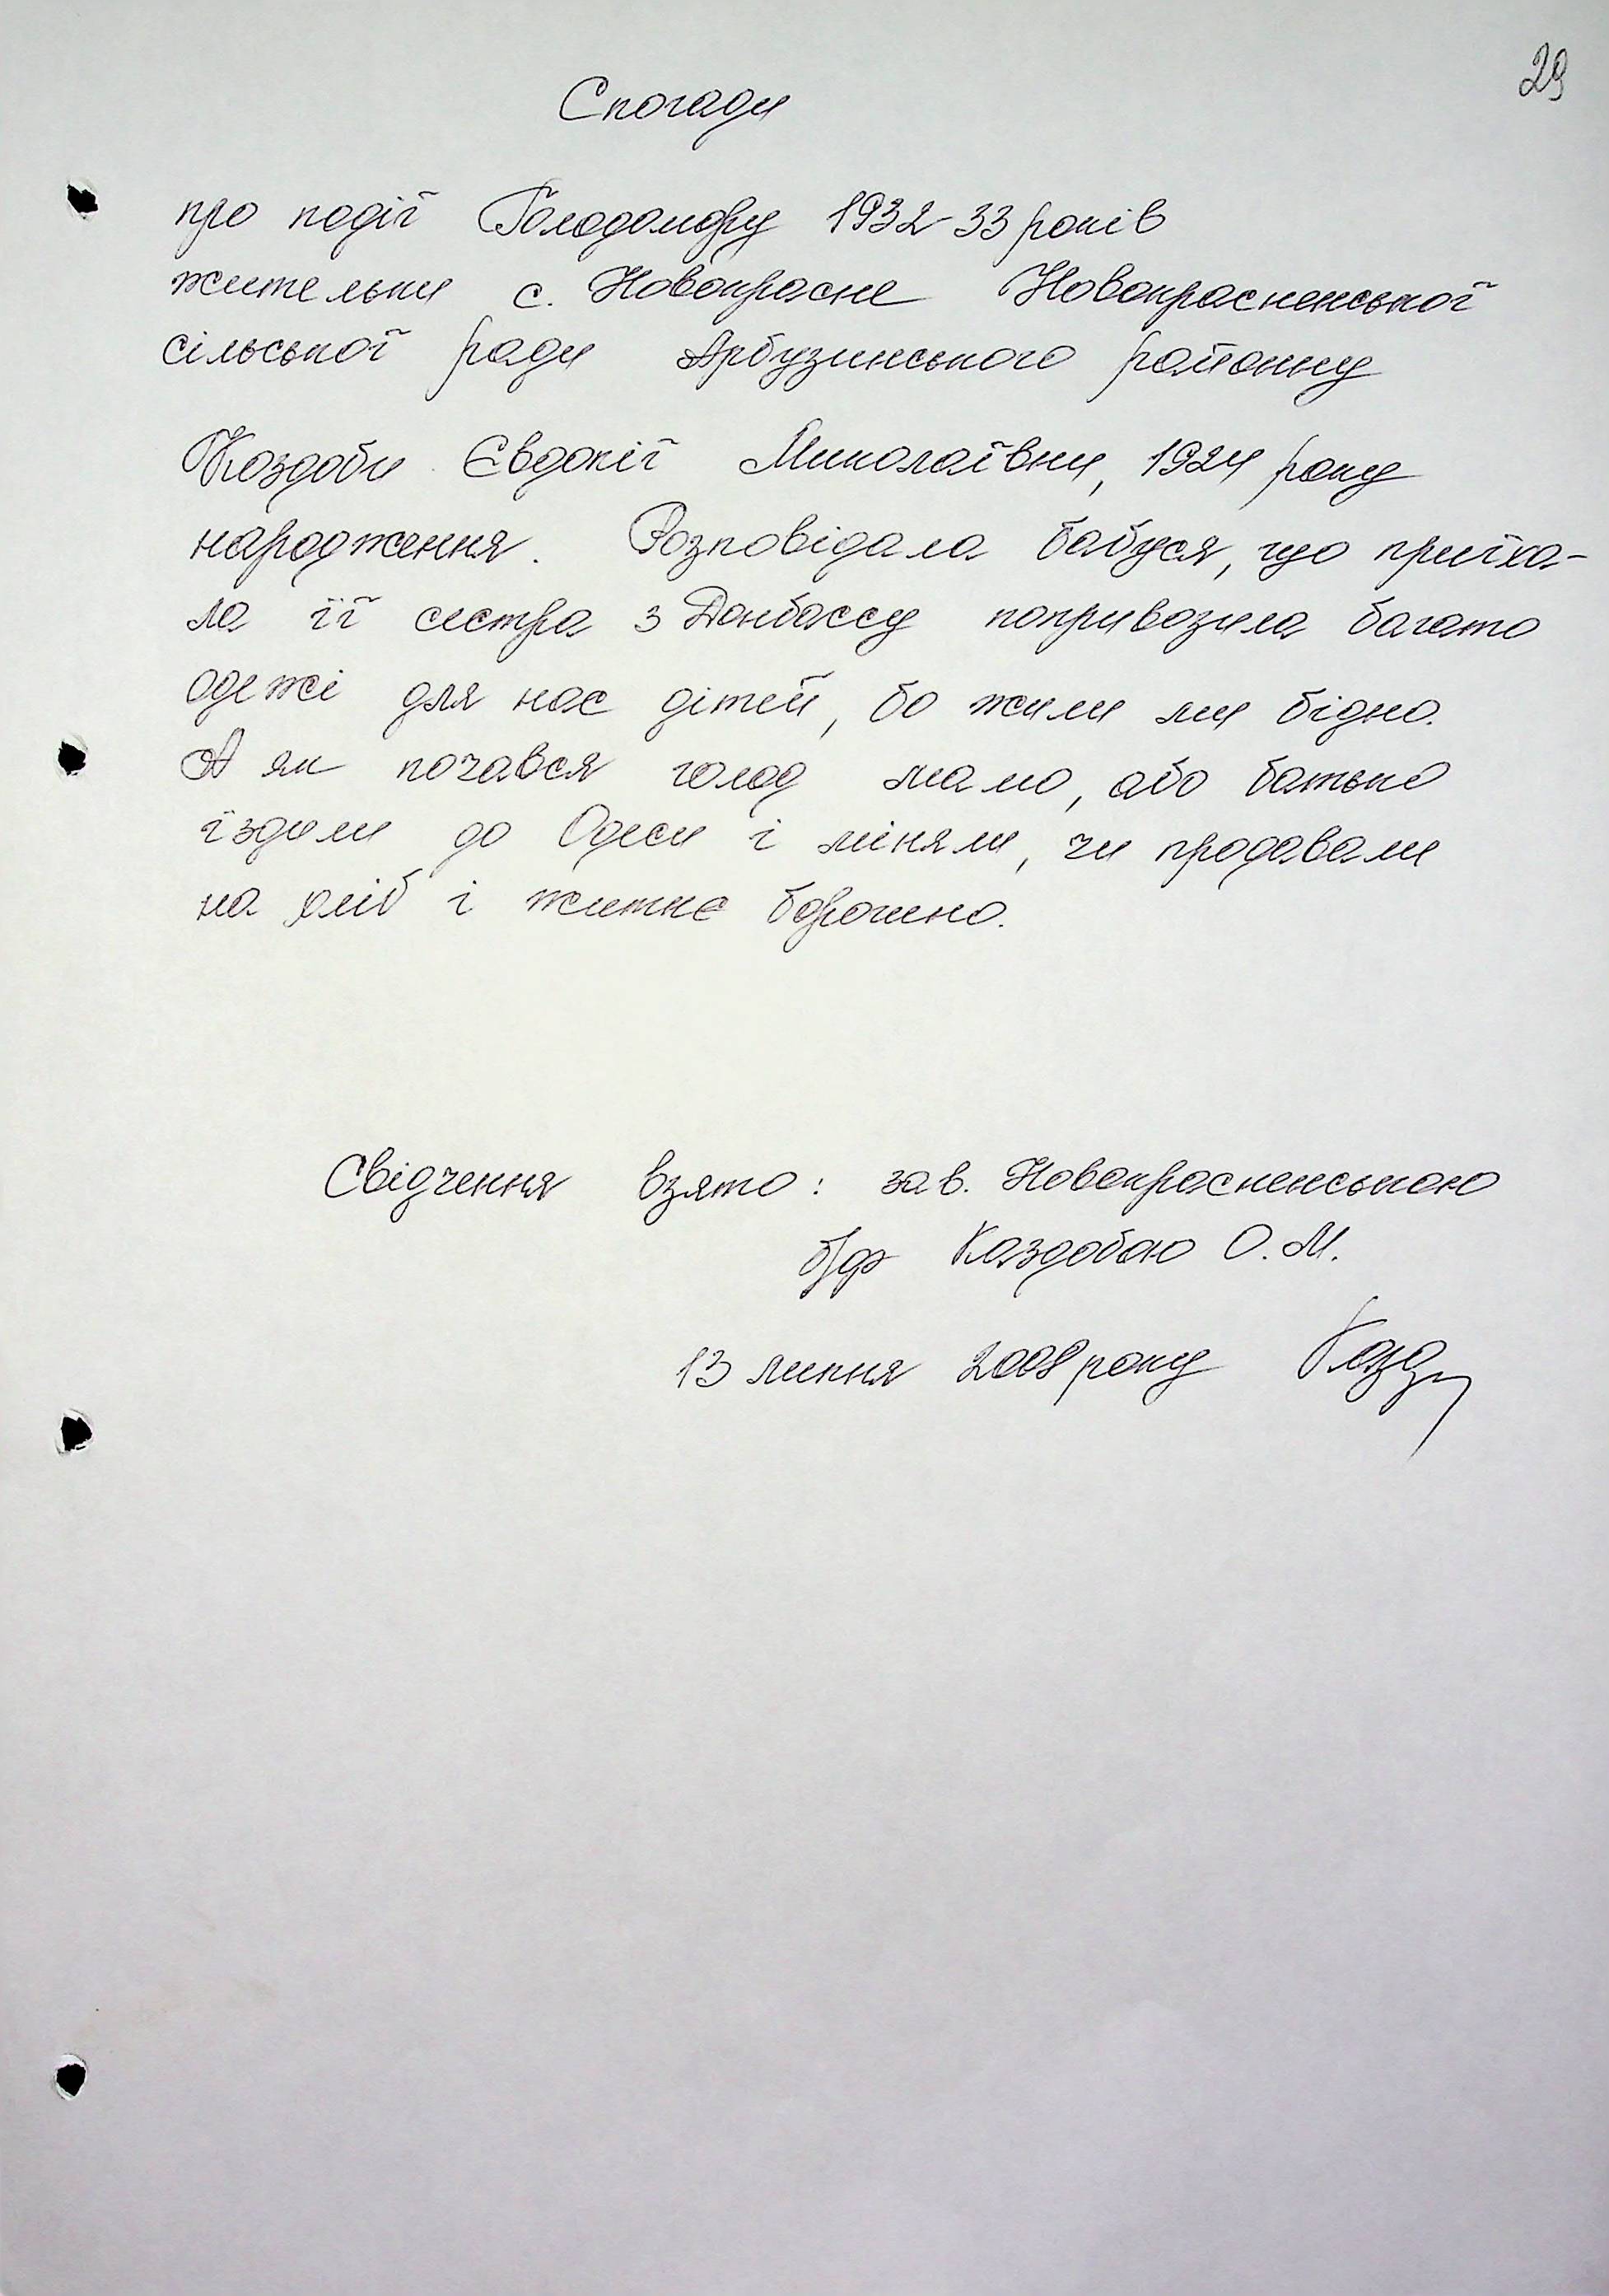 29
Спогади
про події Голодомору 1932-33 років
жительки с. Новокрасне Новокрасненської
сільської ради Арбузинського району
Каздоби Євдокії Миколаївни, 1924 року
народження. Розповідала бабуся, що приїха-
ла її сестра з Донбассу попривозила багато
одежі для нас дітей, бо жили ми бідно.
А як почався голод мама, або батько
їздили до Одеси і міняли, чи продавали
на хліб і житнє борошно.
Свідчення взято: зав. Новокрасненською
б/ф Каздобою О.М.
13 липня 2008 року Казд